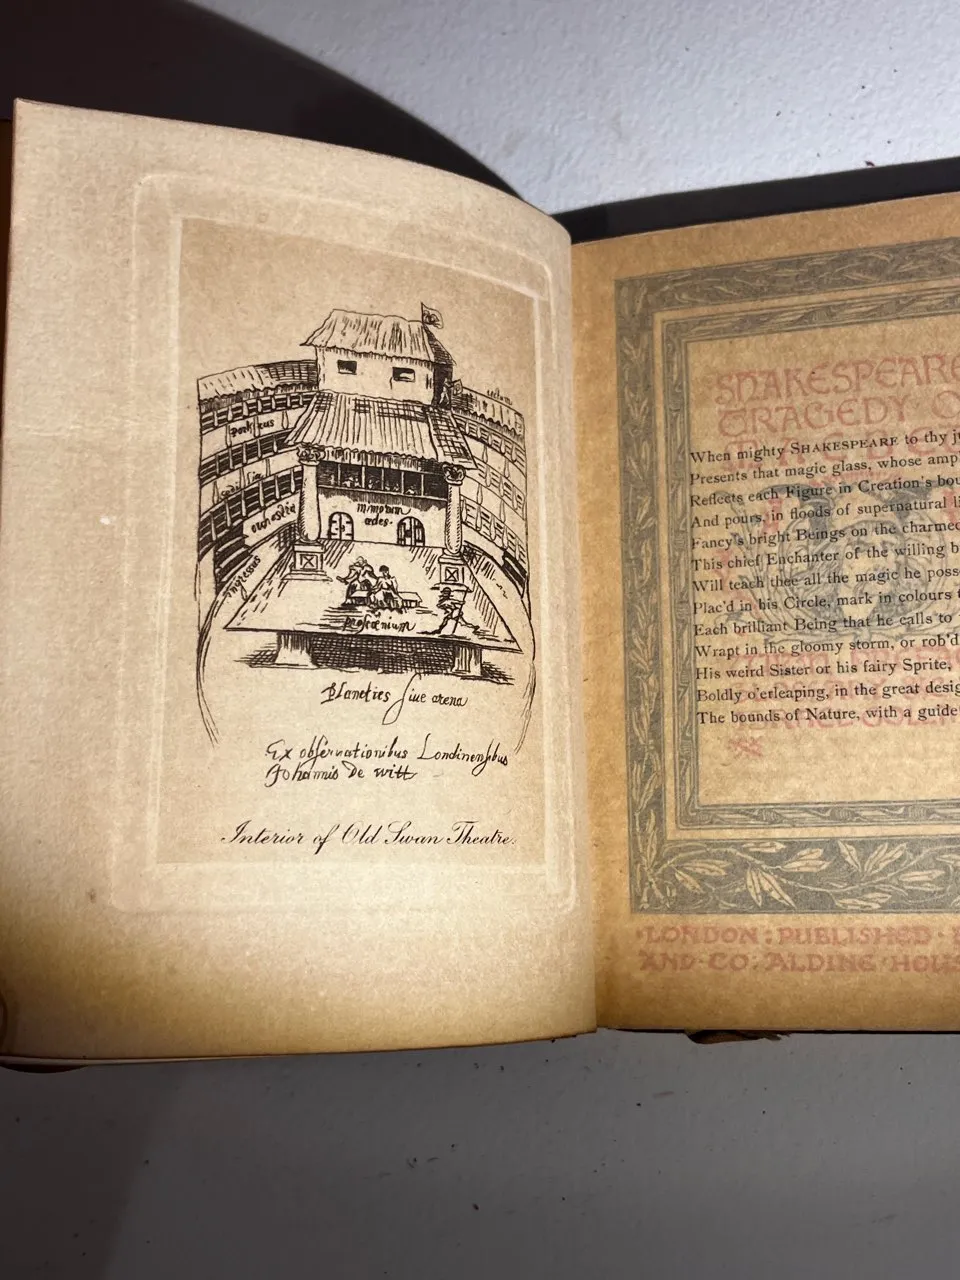 porticus
sedilia
orchestra
ingressus
mimorum
ædes.
proscænium
Planeties sive arena
Ex observationibus Londinensibus
Johannis De witt
Interior of Old Swan Theatre.
SHAKESPEARE
TRAGEDY O
When mighty SHAKESPEARE to thy j
Presents that magic glass, whose amp
Reflects each Figure in Creation's bou
And pours, in floods of supernatural li
Fancy's bright Beings on the charmed
This chief Enchanter of the willing b
Will teach thee all the magic he poss
Plac'd in his Circle, mark in colours t
Each brilliant Being that he calls to
Wrapt in the gloomy storm, or rob'd
His weird Sister or his fairy Sprite,
Boldly o'erleaping, in the great desig
The bounds of Nature, with a guide
LONDON : PUBLISHED
AND · CO : ALDINE · HOUS